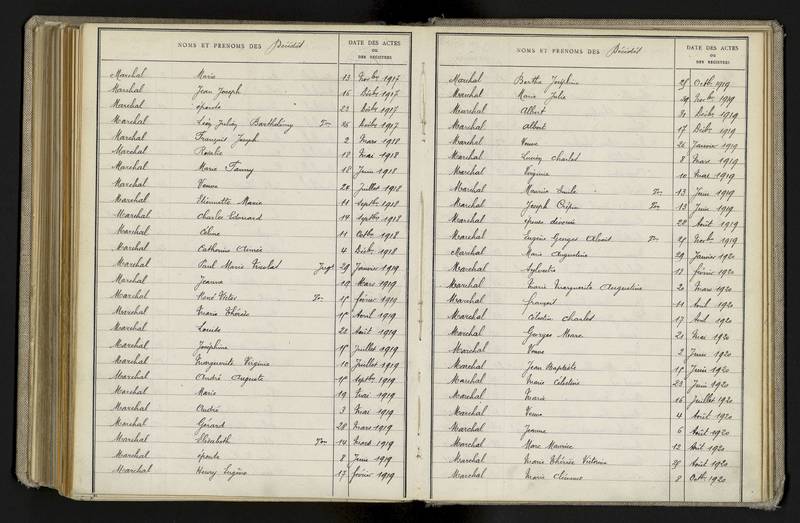 NOMS ET PRENOMS DES Décédés
DATE DES ACTES
OU
DES REGISTRES
Marchal Marie 13 Novbre 1917
Marchal Jean Joseph 16 Débre 1917
Marchal épouse 23 Débre 1917
Marchal Léon Julien Barthélemy Ton 26 Débre 1917
Marchal François Joseph 2 Mars 1918
Marchal Rosalie 18 Mai 1918
Marchal Marie Fanny 18 Juin 1918
Marchal Veuve 24 Juillet 1918
Marchal Etiennette Marie 11 Septbre 1918
Marchal Charles Edouard 14 Septbre 1918
Marchal Céline 11 Octbre 1918
Marchal Catherine Aimée 4 Débre 1918
Marchal Paul Marie Nicolas Jugt 29 Janvier 1919
Marchal Jeanne 19 Mars 1919
Marchal René Victor Ton 15 février 1919
Marchal Marie Thérèse 15 Avril 1919
Marchal Louise 20 Août 1919
Marchal Joséphine 15 Juillet 1919
Marchal Marguerite Virginie 10 Juillet 1919
Marchal André Auguste 15 Septbre 1919
Marchal Marie 19 Mai 1919
Marchal André 3 Mai 1919
Marchal Gérard 28 Mars 1919
Marchal Elisabeth Ton 14 Mars 1919
Marchal épouse 8 Juin 1919
Marchal Henry Eugène 17 février 1919
NOMS ET PRENOMS DES Décédés
DATE DES ACTES
OU
DES REGISTRES
Marchal Berthe Joséphine 25 Octbre 1919
Marchal Marie Julie 29 Novbre 1919
Marchal Albert 31 Débre 1919
Marchal Albert 17 Débre 1919
Marchal Veuve 26 Janvier 1919
Marchal Lucien Charles 8 Mars 1919
Marchal Virginie 10 Mai 1919
Marchal Maurice Emile Ton 13 Juin 1919
Marchal Joseph Ton 13 Juin 1919
Marchal épouse divorcée 28 Août 1919
Marchal Eugène Georges Ton 25 Novbre 1919
Marchal Marie Augustine 29 Janvier 1920
Marchal Sylvestre 13 février 1920
Marchal Marie Marguerite Augustine 20 Mars 1920
Marchal françois 11 Avril 1920
Marchal Célestin Charles 17 Avril 1920
Marchal Georges 20 Mai 1920
Marchal Veuve 2 Juin 1920
Marchal Jean Baptiste 15 Juin 1920
Marchal Marie Célestine 23 Juin 1920
Marchal Marie 16 Juillet 1920
Marchal Veuve 4 Août 1920
Marchal Jeanne 6 Août 1920
Marchal Marc Maurice 12 Août 1920
Marchal Marie Thérèse Victorine 25 Août 1920
Marchal Marie 8 Octbre 1920